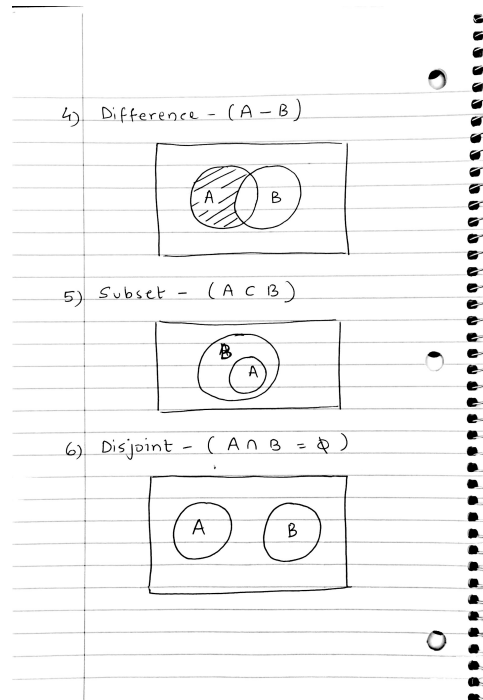 4) Difference - (A - B)
A B
5) Subset - (A ⊂ B)
B
A
6) Disjoint - (A ∩ B = ϕ)
A B